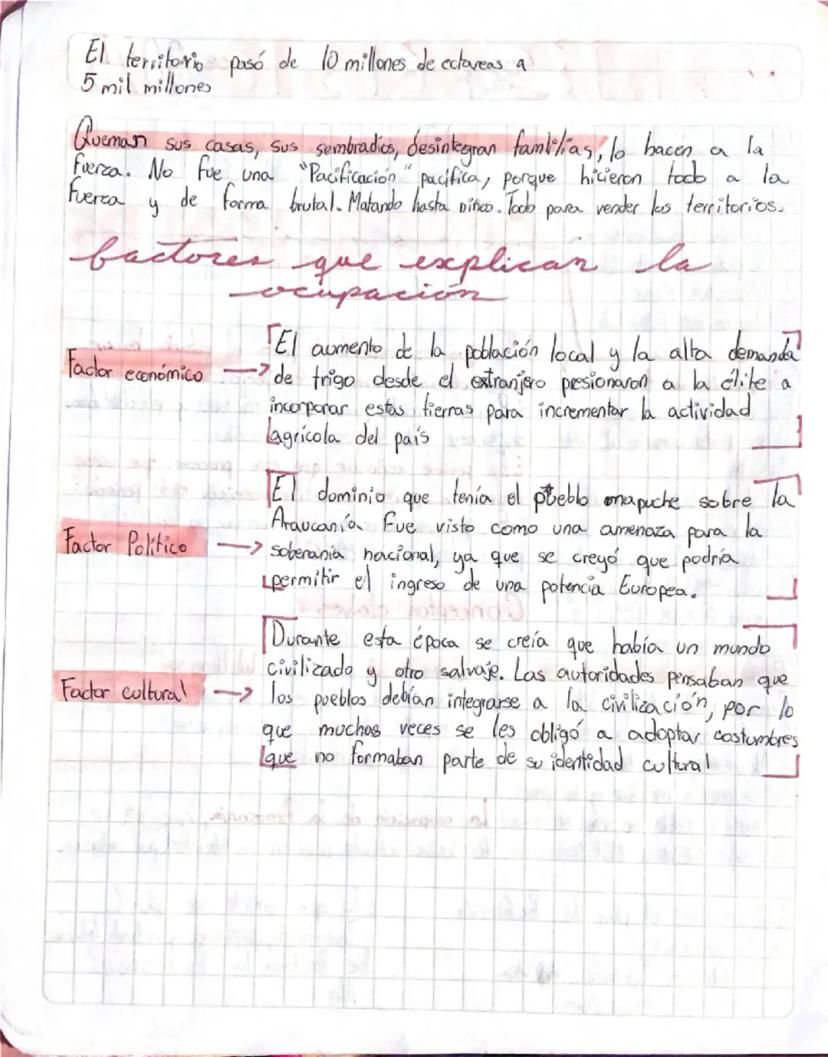 El territorio pasó de 10 millones de ectareas a
5 mil millones
Queman sus casas, sus sembradios, desintegran familias, lo hacen a la
fuerza. No fue una "Pacificación" pacifica, porque hicieron todo a la
fuerza y de forma brutal. Matando hasta niños. Todo para vender los territorios.
factores que explican la
ocupación
Factor económico → El aumento de la población local y la alta demanda
de trigo desde el extranjero presionaron a la élite a
incorporar estas tierras para incrementar la actividad
agrícola del país
Factor Politico → El dominio que tenía el pueblo mapuche sobre la
Araucanía fue visto como una amenaza para la
soberanía nacional, ya que se creyó que podría
permitir el ingreso de una potencia Europea.
Factor cultural → Durante esta época se creía que había un mundo
civilizado y otro salvaje. Las autoridades pensaban que
los pueblos debían integrarse a la civilización, por lo
que muchas veces se les obligó a adoptar costumbres
que no formaban parte de su identidad cultural